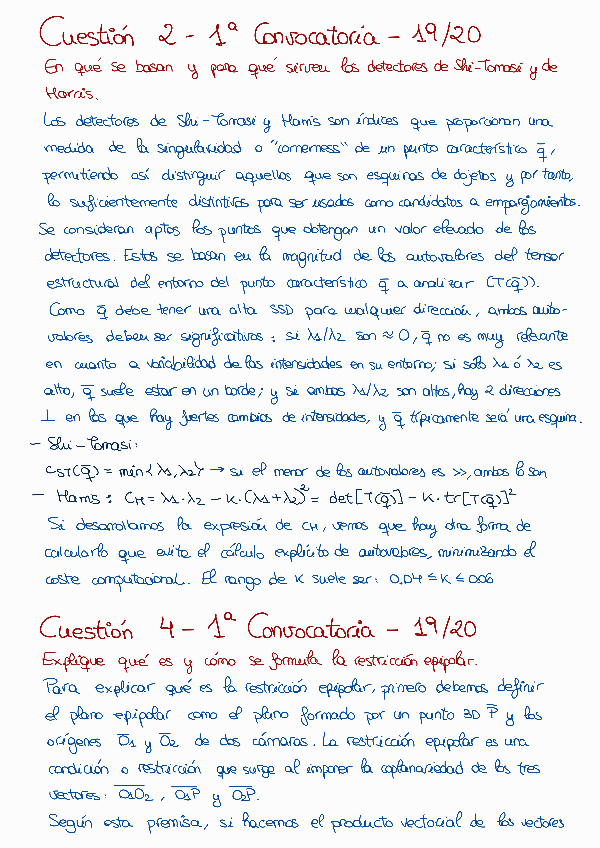 Cuestión 2 - 1ª Convocatoria - 19/20
En qué se basan y para qué sirven los detectores de Shi-Tomasi y de
Harris.
Los detectores de Shi-Tomasi y Harris son índices que proporcionan una
medida de la singularidad o "cornerness" de un punto característico q̅,
permitiendo así distinguir aquellos que son esquinas de objetos y por tanto,
lo suficientemente distintivos para ser usados como candidatos a emparejamientos.
Se consideran aptos los puntos que obtengan un valor elevado de los
detectores. Estos se basan en la magnitud de los autovalores del tensor
estructural del entorno del punto característico q̅ a analizar (T(q̅)).
Como q̅ debe tener una alta SSD para cualquier dirección, ambos auto-
valores deben ser significativos: si λ1/λ2 son ≈ 0, q̅ no es muy relevante
en cuanto a variabilidad de las intensidades en su entorno; si sólo λ1 ó λ2 es
alto, q̅ suele estar en un borde; y si ambos λ1/λ2 son altos, hay 2 direcciones
⊥ en las que hay fuertes cambios de intensidades, y q̅ típicamente será una esquina.
- Shi-Tomasi:
CST(q̅) = min{λ1, λ2} → si el menor de los autovalores es >>, ambos lo son
- Harris: CH = λ1·λ2 - K·(λ1+λ2)² = det[T(q̅)] - K·tr[T(q̅)]²
Si desarrollamos la expresión de CH, vemos que hay otra forma de
calcularlo que evita el cálculo explícito de autovalores, minimizando el
coste computacional. El rango de K suele ser: 0,04 ≤ K ≤ 0,06
Cuestión 4 - 1ª Convocatoria - 19/20
Explique qué es y cómo se formula la restricción epipolar.
Para explicar qué es la restricción epipolar, primero debemos definir
el plano epipolar como el plano formado por un punto 3D P̅ y los
orígenes O̅1 y O̅2 de dos cámaras. La restricción epipolar es una
condición o restricción que surge al imponer la coplanariedad de los tres
vectores: O̅1̅O̅2̅, O̅1̅P̅ y O̅2̅P̅.
Según esta premisa, si hacemos el producto vectorial de los vectores